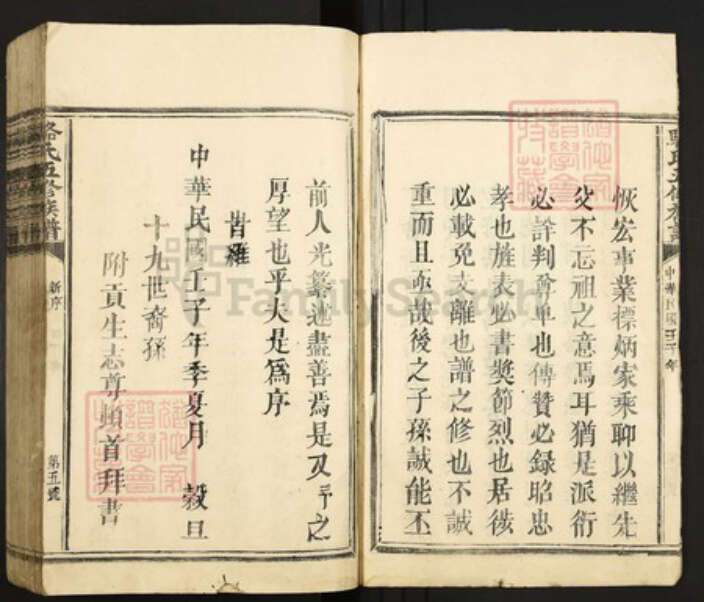 恢宏事業標炳家乘聊以繼先
父不忘祖之意焉耳猶是派衍
必詳判尊卑也傳贊必錄昭忠
孝也旌表必書獎節烈也居徙
必載免支離也譜之修也不誠
重而且亟哉後之子孫誠能丕
中華民國壬子年
前人光纂述盡善焉是又予之
厚望也乎夫是為序
旹維
中華民國壬子年季夏月 穀旦
十九世裔孫
附貢生志尊頓首拜書
駱氏五修族譜
新序
第五號
FamilySearch